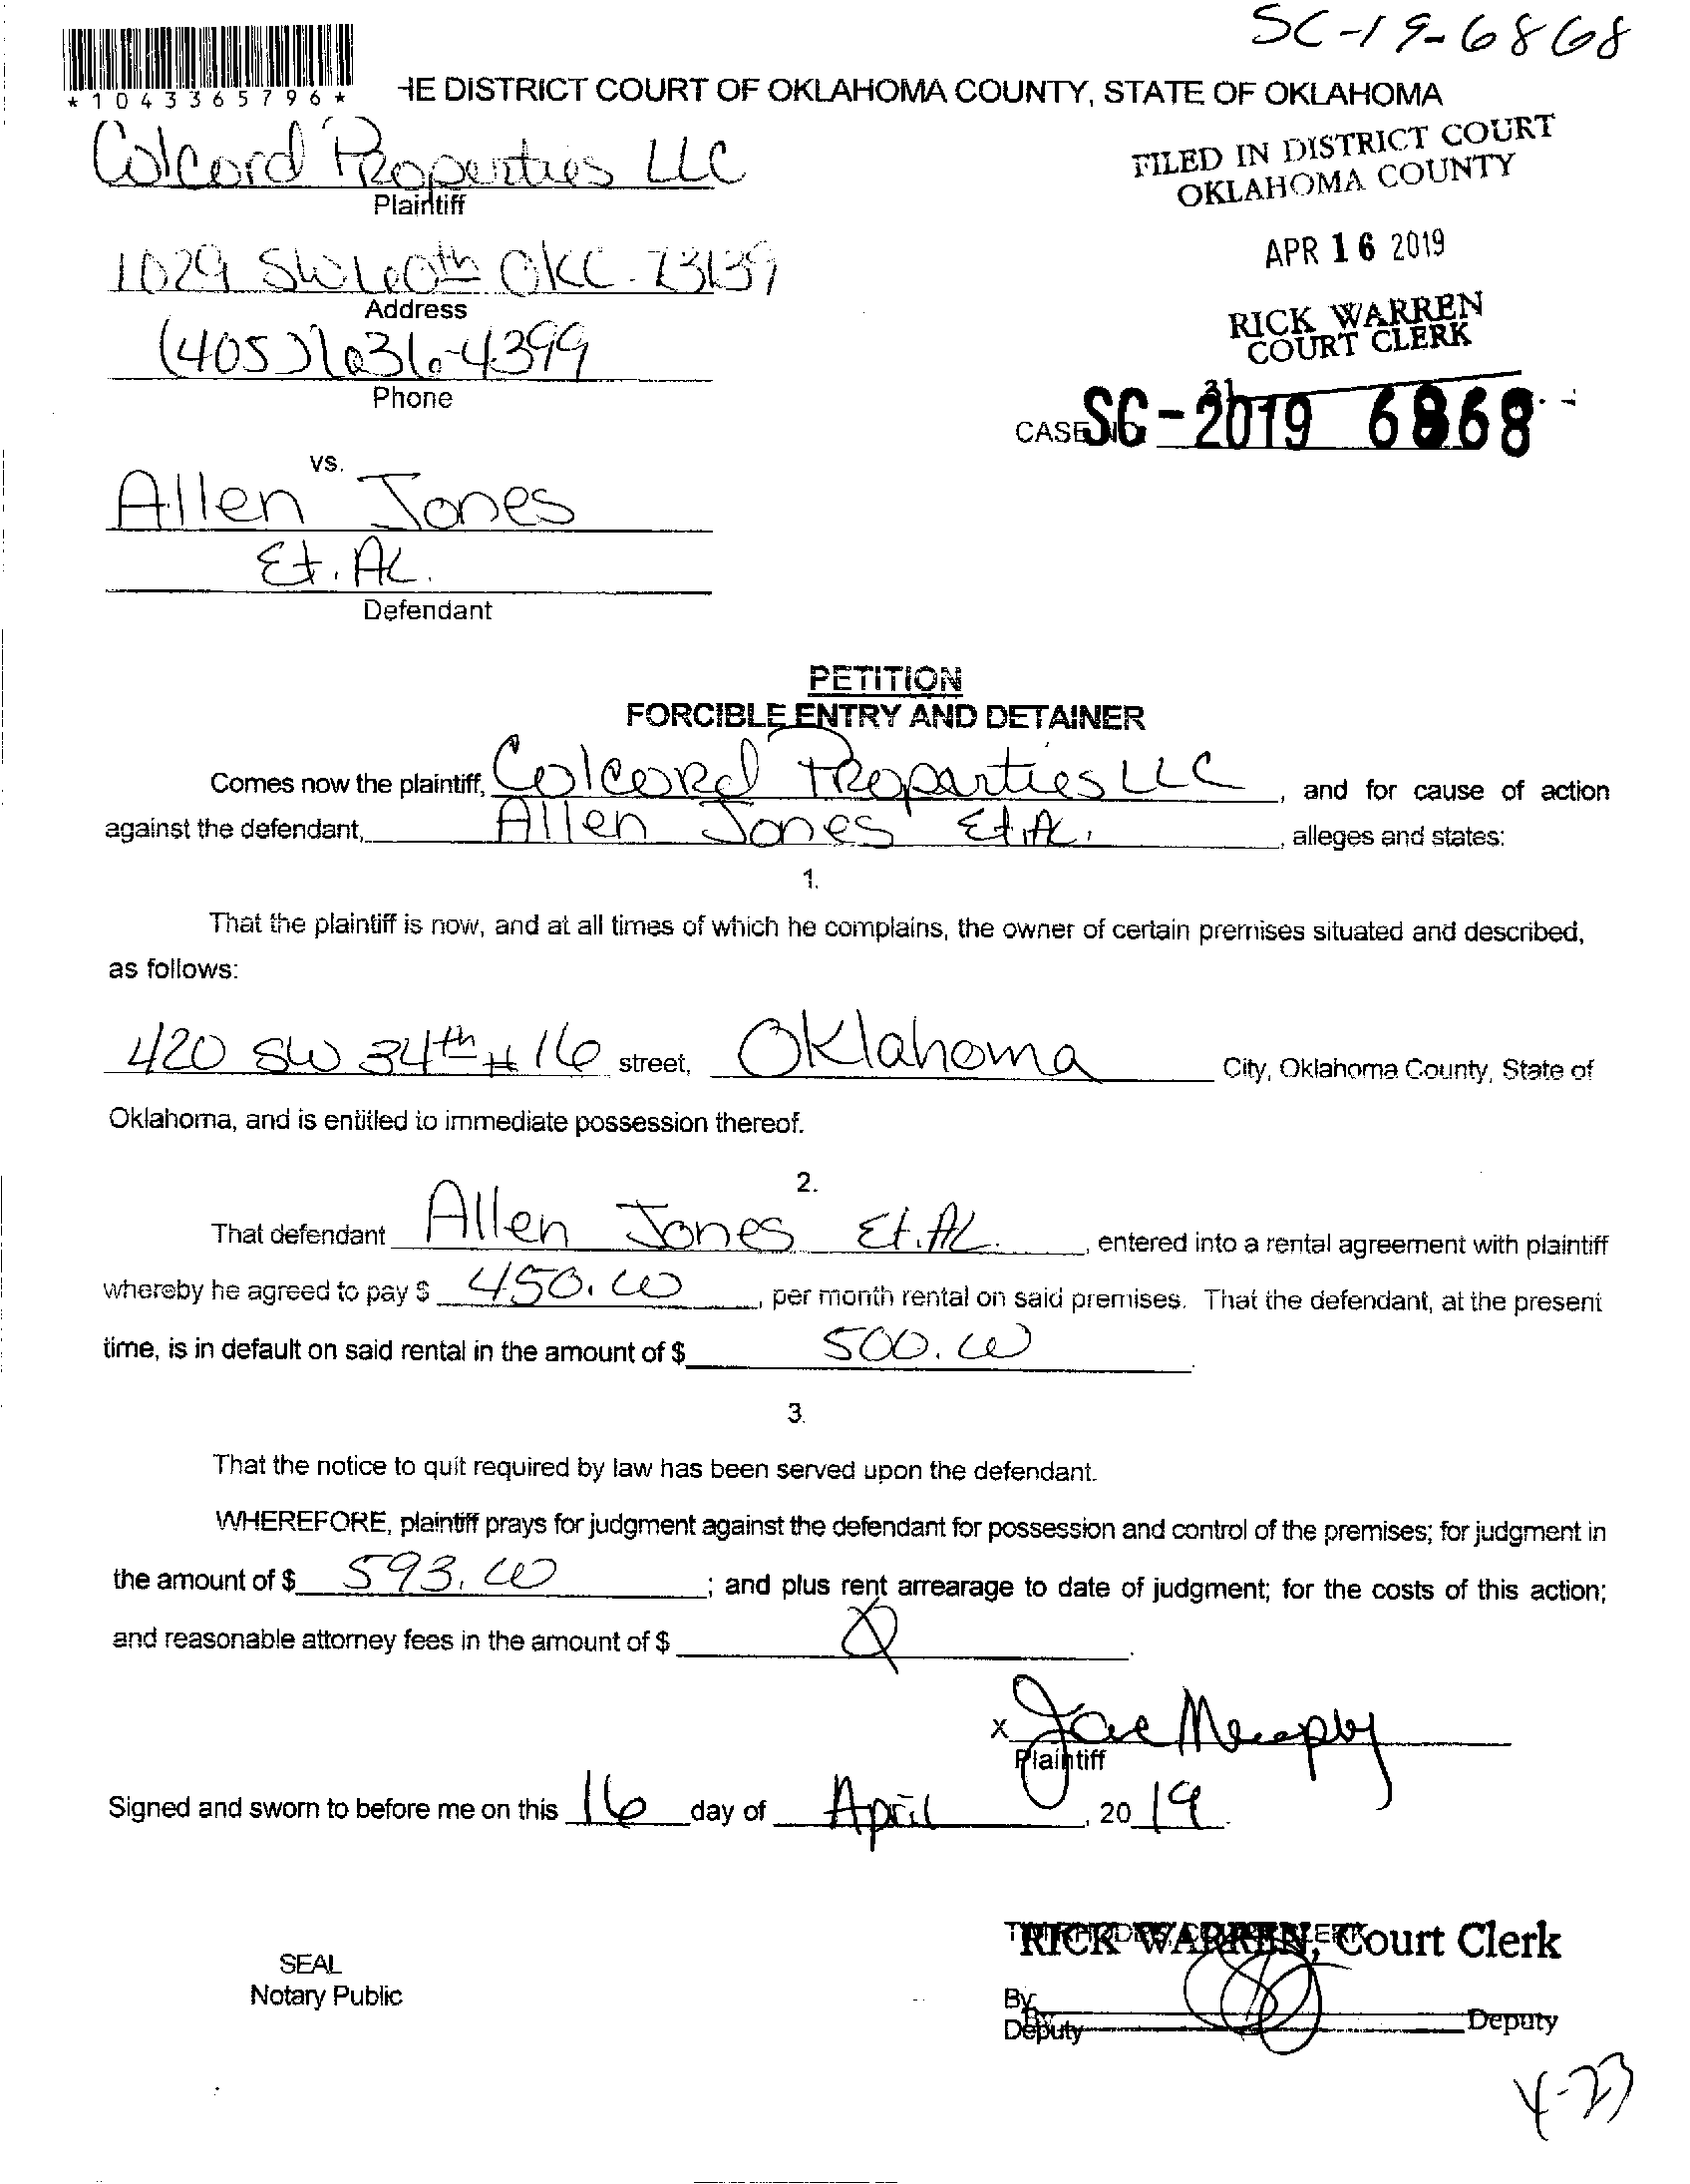 SC-19-6868
*1043365796*
HE DISTRICT COURT OF OKLAHOMA COUNTY, STATE OF OKLAHOMA
Colcord Properties LLC
Plaintiff
FILED IN DISTRICT COURT
OKLAHOMA COUNTY
1029 SW 60th OKC. 73139
Address
APR 16 2019
(405) 636-4399
Phone
RICK WARREN
COURT CLERK
31
CASE NO. SC-2019 6868
vs.
Allen Jones
Et. AL.
Defendant
PETITION
FORCIBLE ENTRY AND DETAINER
Comes now the plaintiff, Colcord Properties LLC, and for cause of action
against the defendant, Allen Jones Et. AL., alleges and states:
1.
That the plaintiff is now, and at all times of which he complains, the owner of certain premises situated and described,
as follows:
420 SW 34th #16 street, Oklahoma City, Oklahoma County, State of
Oklahoma, and is entitled to immediate possession thereof.
2.
That defendant Allen Jones Et. AL., entered into a rental agreement with plaintiff
whereby he agreed to pay $ 450.00, per month rental on said premises. That the defendant, at the present
time, is in default on said rental in the amount of $ 500.00.
3.
That the notice to quit required by law has been served upon the defendant.
WHEREFORE, plaintiff prays for judgment against the defendant for possession and control of the premises; for judgment in
the amount of $ 593.00; and plus rent arrearage to date of judgment; for the costs of this action;
and reasonable attorney fees in the amount of $ .
x
Plaintiff
Signed and sworn to before me on this 16 day of April, 2019.
RICK WARREN, Court Clerk
SEAL
Notary Public
By
Deputy
Deputy
4-23